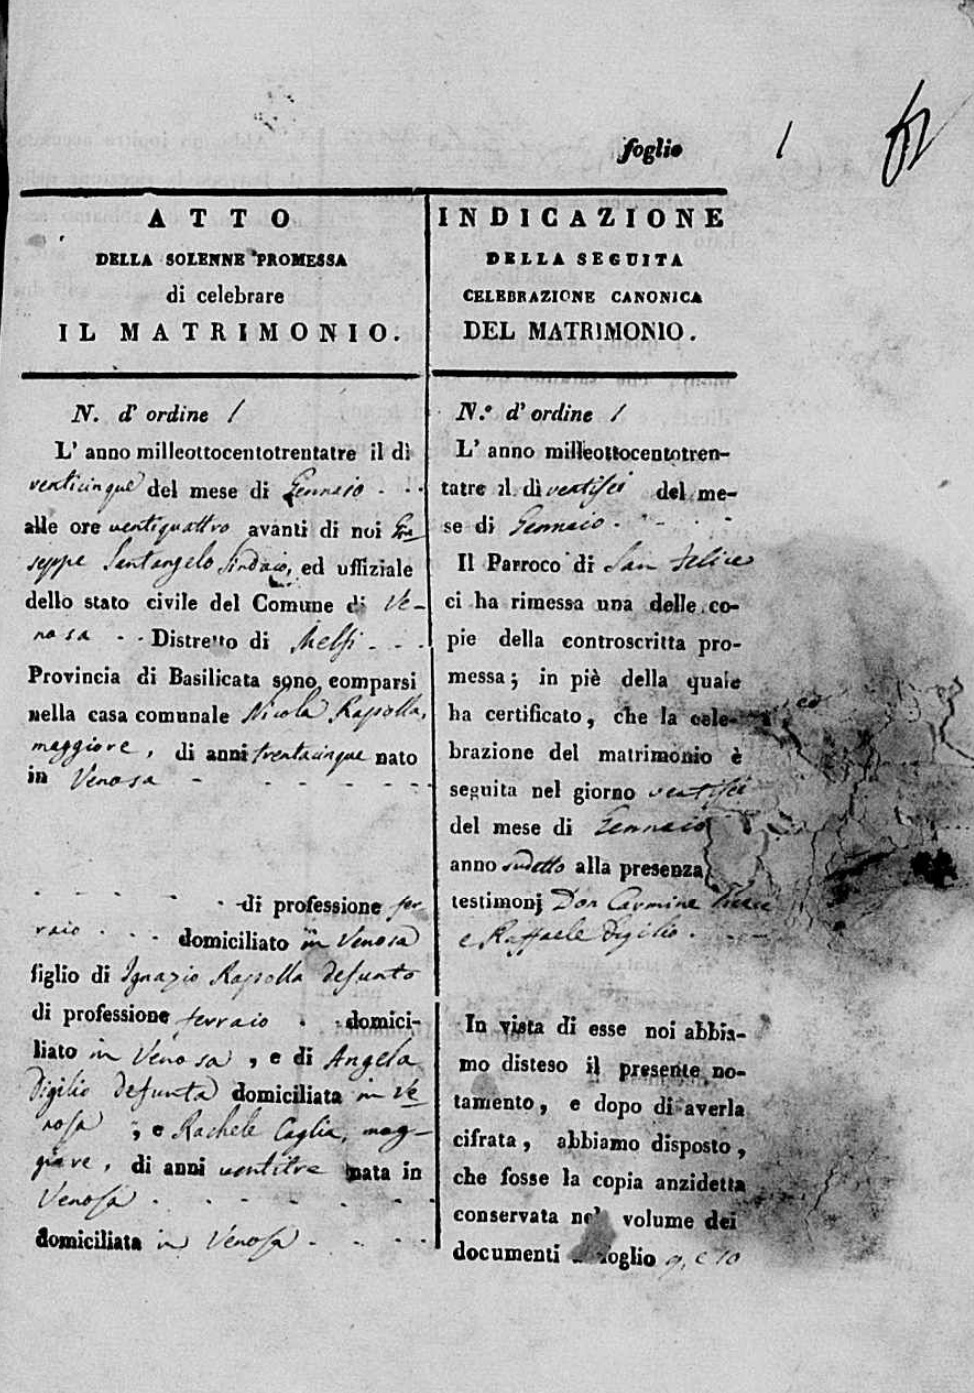 foglio 1
ATTO
DELLA SOLENNE PROMESSA
di celebrare
IL MATRIMONIO.
N. d'ordine 1
L'anno milleottocentotrentatre il dì
venticinque del mese di Gennaio
alle ore ventiquattro avanti di noi Giu-
seppe Santangelo Sindaco, ed uffiziale
dello stato civile del Comune di Ve-
nosa Distretto di Melfi
Provincia di Basilicata sono comparsi
nella casa comunale Nicola Rapolla,
maggiore, di anni trentacinque nato
in Venosa
di professione fer
raio domiciliato in Venosa
figlio di Ignazio Rapolla defunto
di professione ferraio domici-
liato in Venosa, e di Angela
Digilio defunta domiciliata in Ve
nosa, e Rachele Caglia, mag-
giore, di anni ventitre nata in
Venosa
domiciliata in Venosa
INDICAZIONE
DELLA SEGUITA
CELEBRAZIONE CANONICA
DEL MATRIMONIO.
N.º d'ordine 1
L'anno milleottocentotren-
tatre il dì ventisei del me-
se di Gennaio
Il Parroco di San Felice
ci ha rimessa una delle co-
pie della controscritta pro-
messa; in piè della quale
ha certificato, che la cele-
brazione del matrimonio è
seguita nel giorno ventisei
del mese di Gennaio
anno sudetto alla presenza
testimonj Don Carmine
e Raffaele Digilio
In vista di esse noi abbia-
mo disteso il presente no-
tamento, e dopo di averla
cifrata, abbiamo disposto,
che fosse la copia anzidetta
conservata nel volume dei
documenti foglio 9, e 10